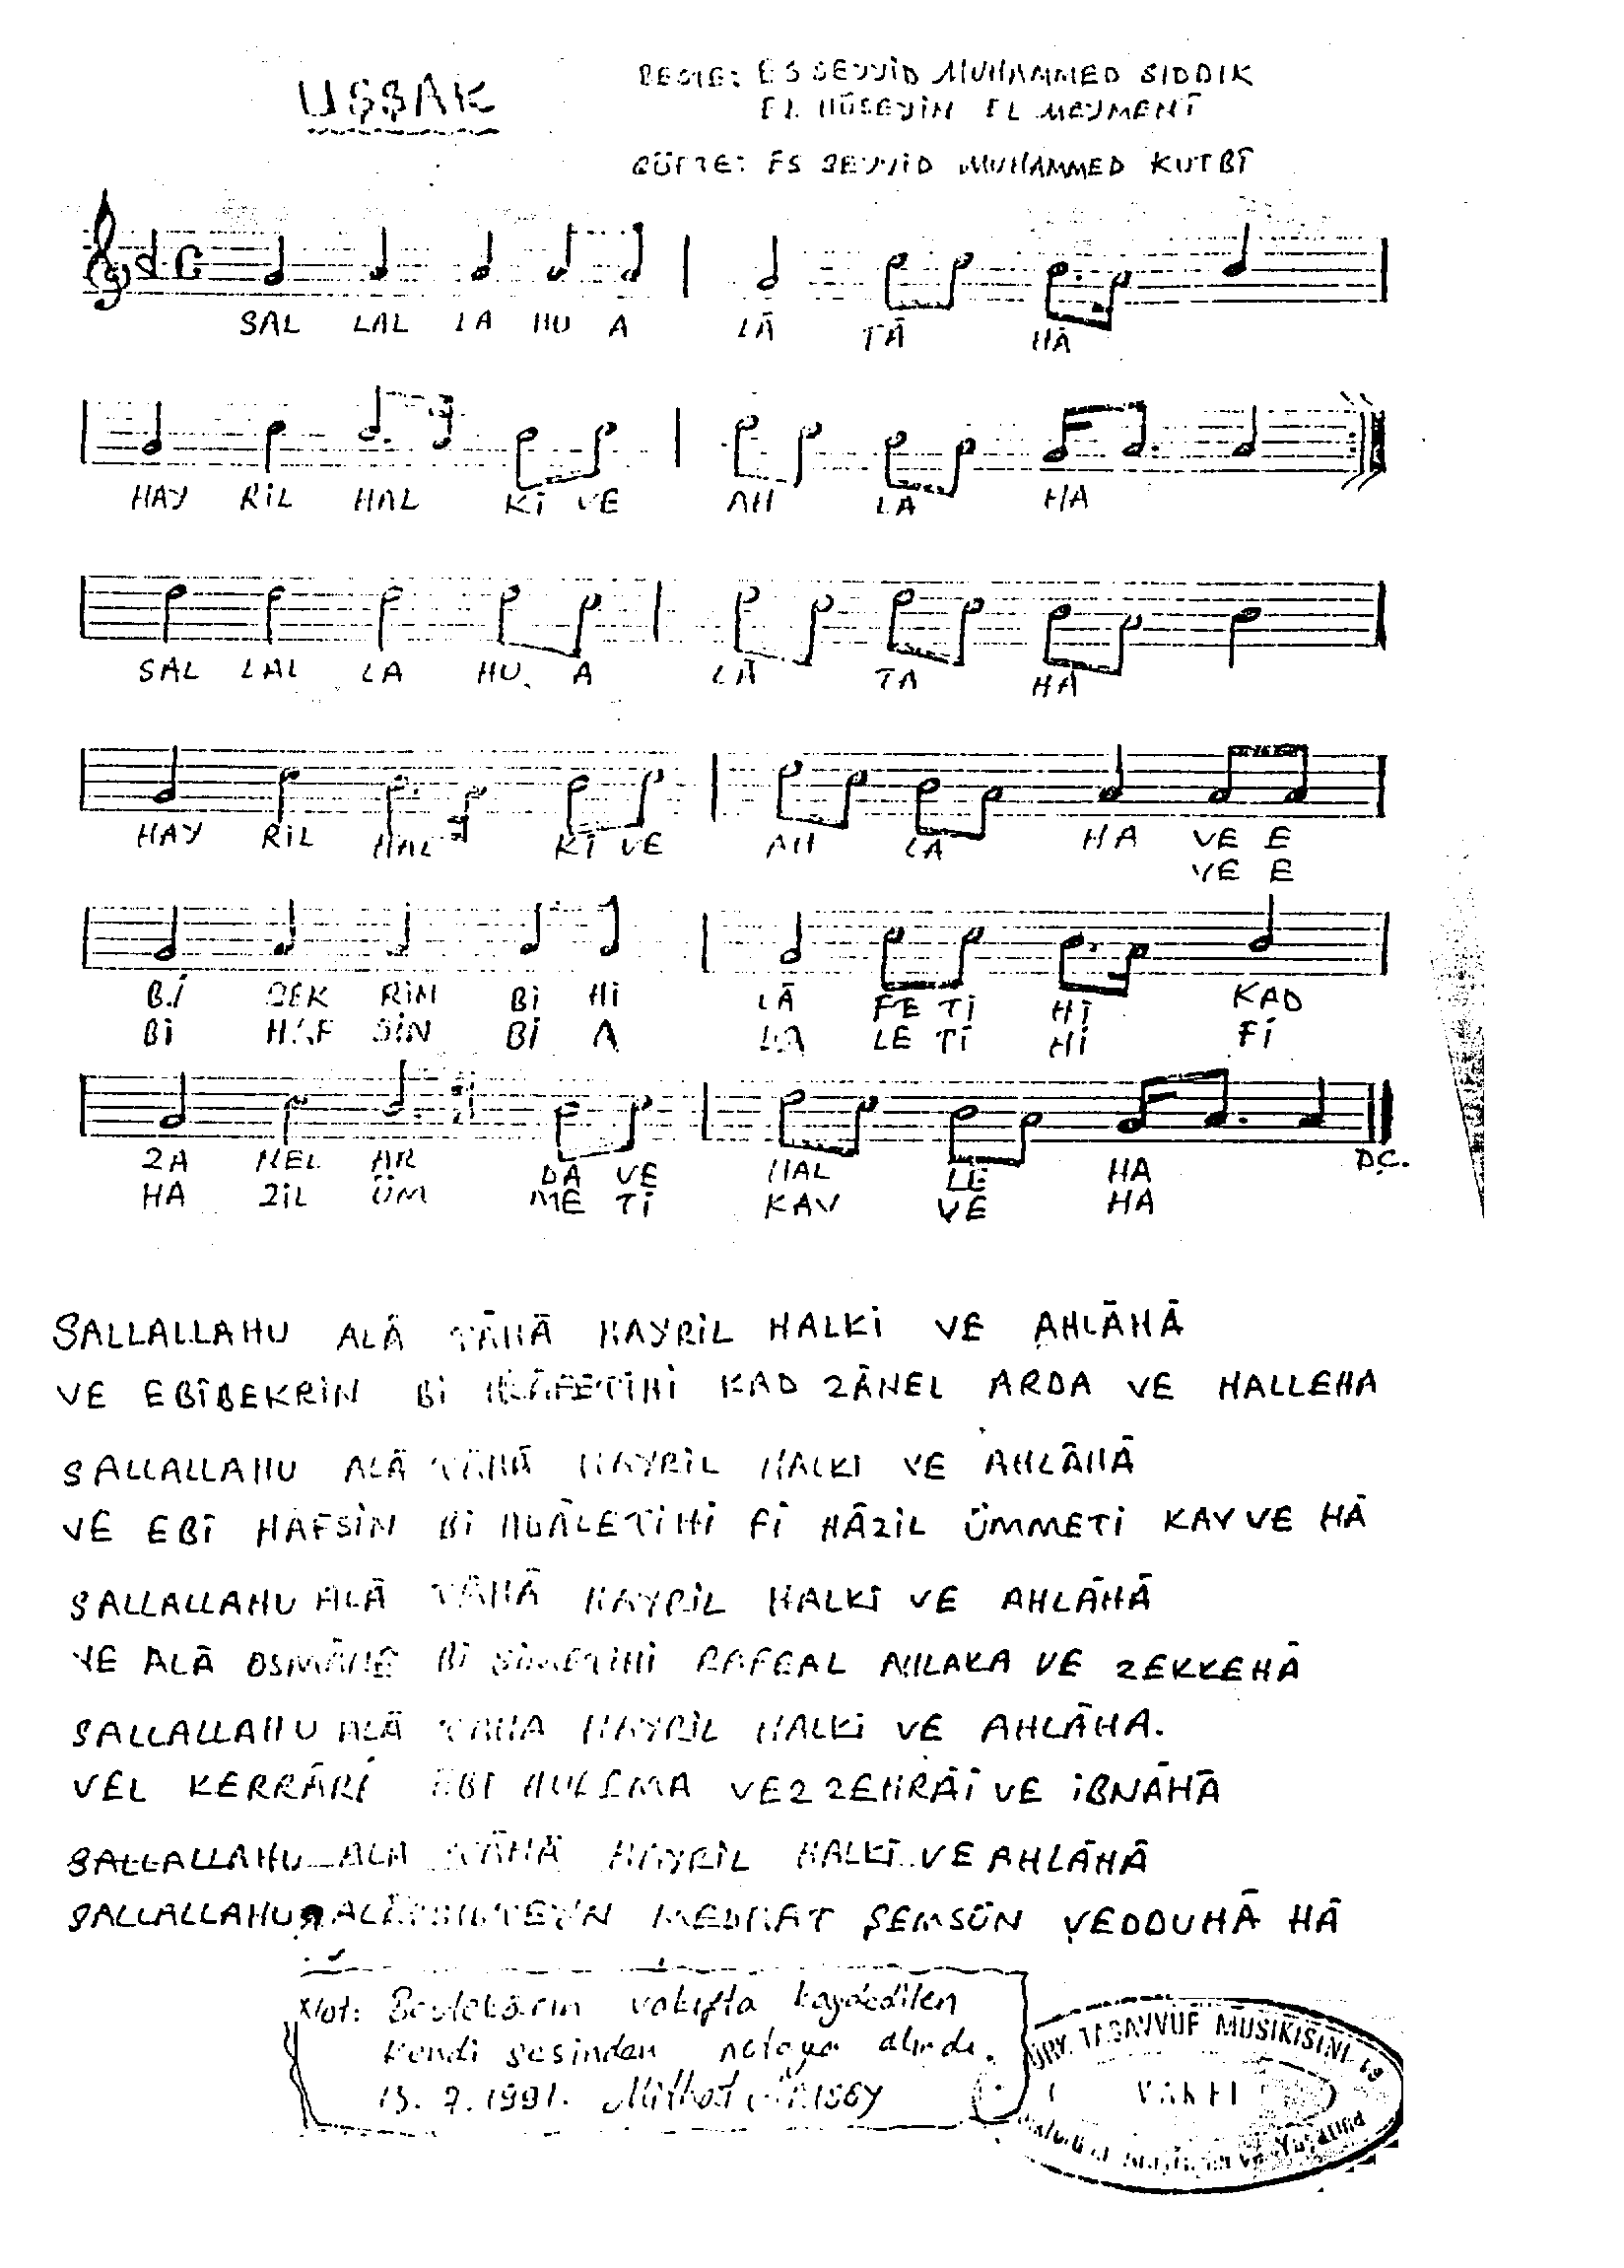 UŞŞAK
BESTE: ES SEYYİD MUHAMMED SIDDIK
EL HÜSEYİN EL MEYMENİ
GÜFTE: ES SEYYİD MUHAMMED KUTBÎ
SAL LAL LA HU A LÂ TÂ HÂ
HAY RİL HAL Kİ VE AH LA HA
SAL LAL LA HU A LÂ TA HA
HAY RİL HAL Kİ VE AH LA HA VE E
VE E
Bİ BEK RİN Bİ Hİ LÂ FE Tİ Hİ KAD
Bİ HAF SİN Bİ A LA LE Tİ Hİ Fİ
ZA NEL AR DA VE HAL LE HA
HA ZİL ÜM ME Tİ KAV VE HA
D.C.
SALLALLAHU ALÂ TÂHÂ HAYRİL HALKİ VE AHLÂHÂ
VE EBÎBEKRİN Bİ KAD ZÂNEL ARDA VE HALLEHA
SALLALLAHU ALÂ TÂHÂ HAYRİL HALKI VE AHLÂHÂ
VE EBÎ HAFSİN Bİ Fİ HÂZİL ÜMMETİ KAVVE HÂ
SALLALLAHU ALÂ TÂHÂ HAYRİL HALKİ VE AHLÂHÂ
VE ALÂ OSMÂNE Bİ VE ZEKKEHÂ
SALLALLAHU ALÂ TAHA HAYRİL HALKİ VE AHLÂHA.
VEL KERRÂRİ EBİ VEZZEHRÂİ VE İBNÂHÂ
SALLALLAHU ALA TÂHÂ HAYRİL HALKİ VE AHLÂHÂ
SALLALLAHU ŞEMSÜN VEDDUHÂ HÂ
Not: Bestekârın vakıfta kaydedilen
kendi sesinden notaya alındı.
13.7.1991. Mithat
TASAVVUF MÛSIKİSİNİ
VAKFI